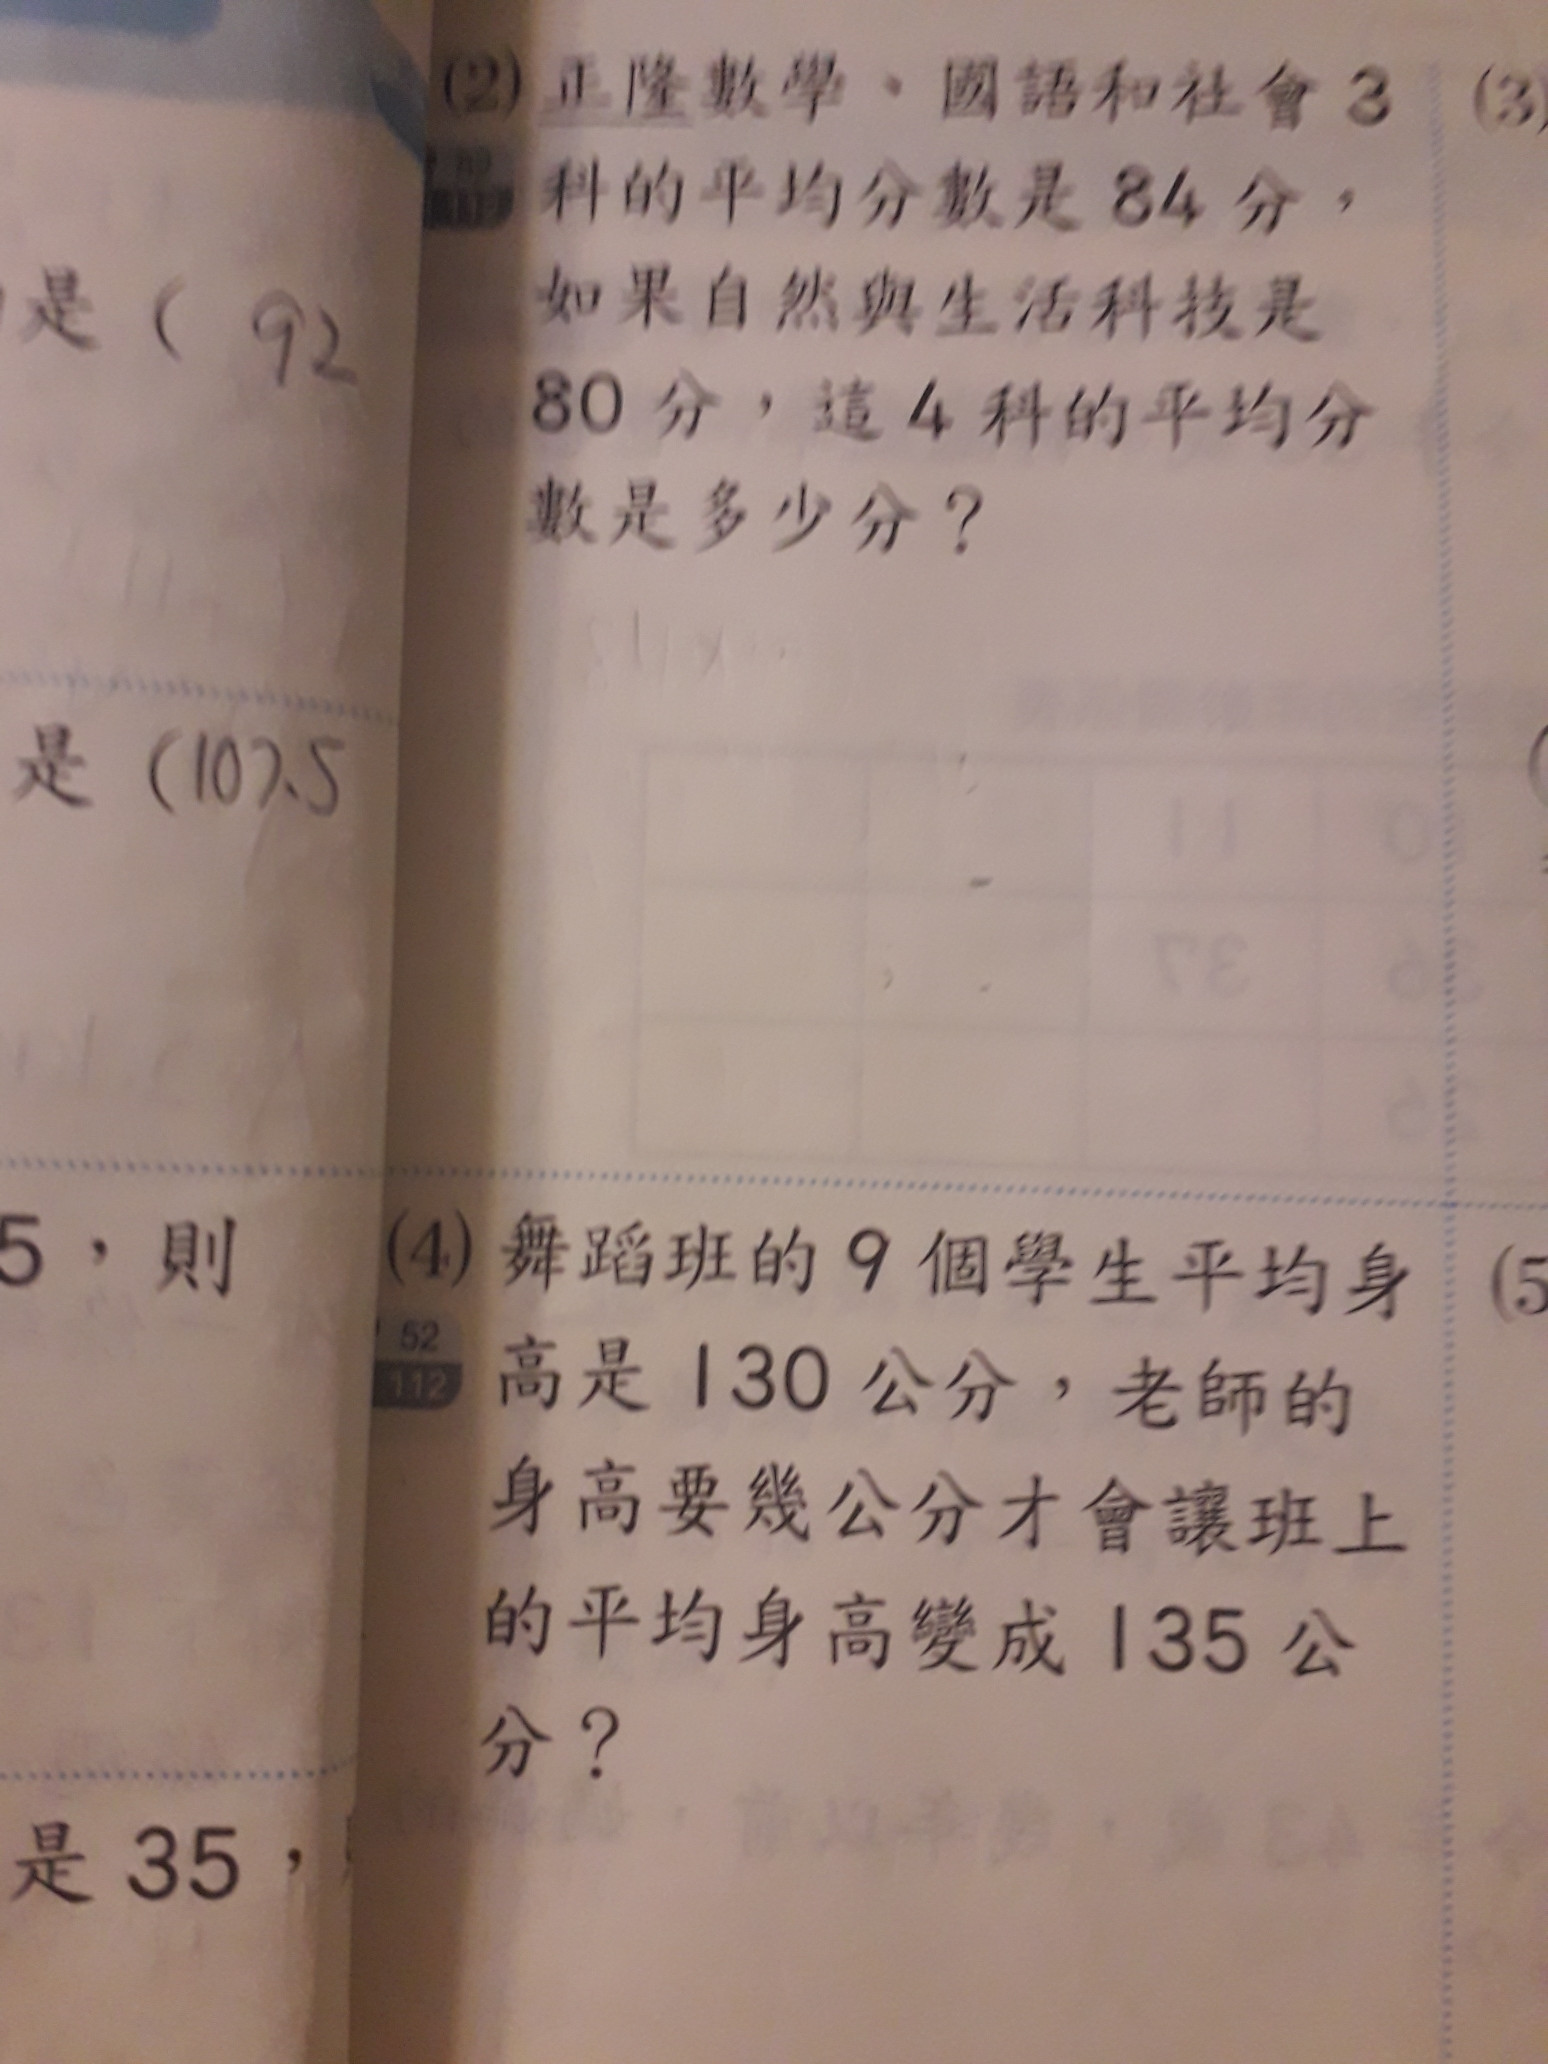 (2) 正隆數學、國語和社會3
科的平均分數是84分，
如果自然與生活科技是
80分，這4科的平均分
數是多少分？
(4) 舞蹈班的9個學生平均身
52
112
高是130公分，老師的
身高要幾公分才會讓班上
的平均身高變成135公
分？
是( 92
是(107.5
5，則
是35，
(3)
(5